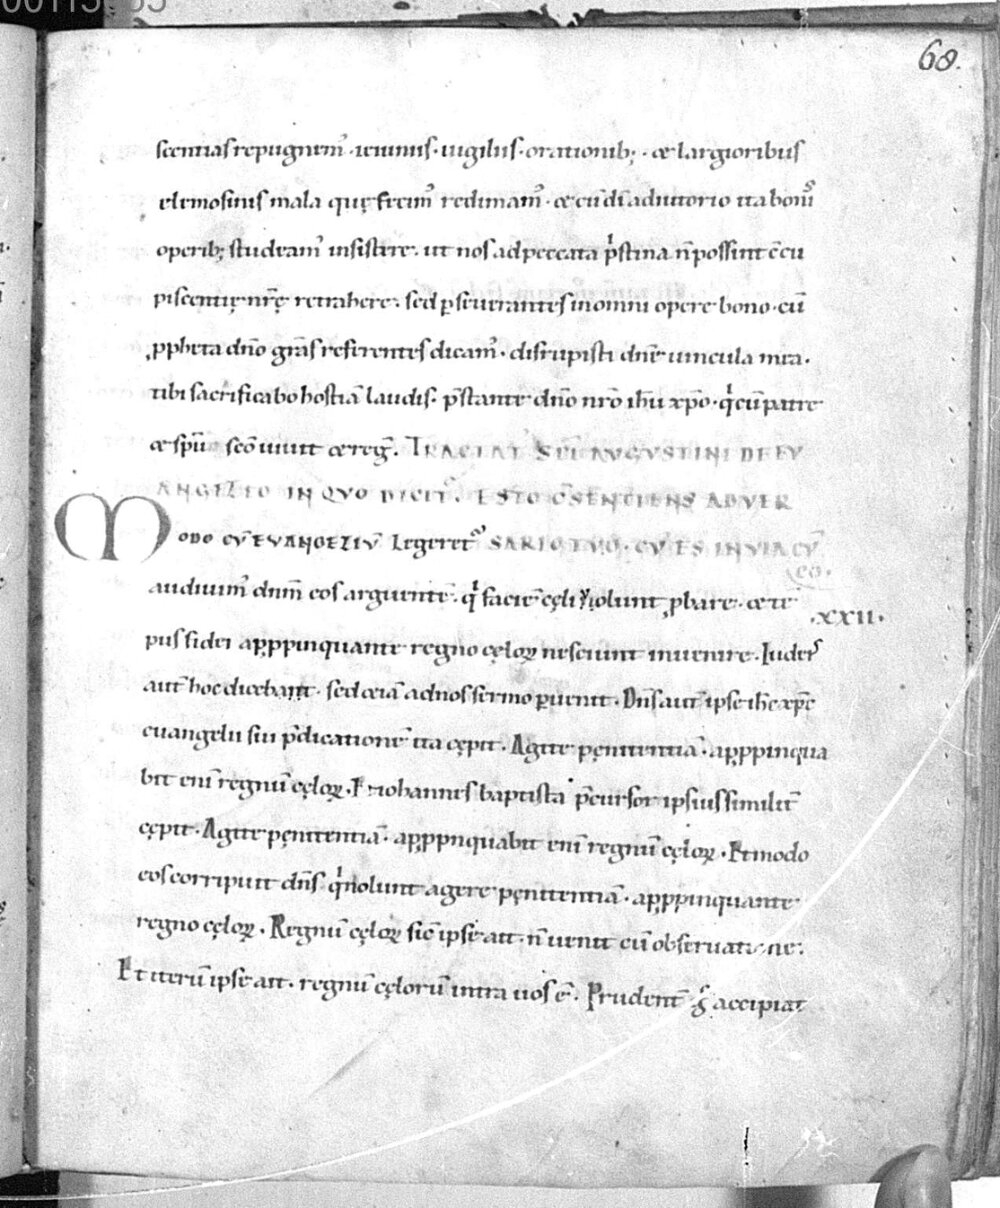 68.
scentias repugnem᾽ · ieiuniis · uigiliis · orationib; · & largioribus
elemosinis mala quę fecim᾽ redimam᾽ · & cū dī adiutorio ita bonis
operib; studeam᾽ insistere · ut nos ad peccata p̍stina n̄ possint c̄cu
piscentię nr̄ę retrahere · sed p̱seuerantes in omni opere bono · cū
ꝓpheta dn̄o grās referentes dicam᾽ · disrupisti dn̄e uincula mea ·
tibi sacrificabo hostiā laudis · p̄stante dn̄o nr̄o ih̄u xp̄o · q̍ cū patre
& sp̄u sc̄o uiuit & regn̄ . TRACTAT᾽ SC̄I AUGUSTINI DE EU
ANGELIO IN QUO DICIT᾽ . ESTO C̄SENTIENS ADUER
MODO CŪ EUANGELIŪ Legeret᾽ SARIO TUO · CŪ ES IN UIA CŪ
eo .
audiuim᾽ dn̄m eos arguentē · q̍ faciē cęli nolunt ꝓbare · & tē
· XXII ·
pus fidei apꝓpinquante regno cęloꝝ nesciunt inuenire . Iudeis
aut̄ hoc dicebant · sed &iā ad nos sermo p̱uenit . Dn̄s aut̄ ipse ih̄c xp̄c
euangelii sui p̄dicationē ita cępit . Agite pęnitentiā · apꝓpinqua
bit enī regnū cęloꝝ . Et iohannes baptista p̄cursor ipsius similit̄
cępit · Agite pęnitentiā · apꝓpnquabit enī regnū cęloꝝ . Et modo
eos corripuit dn̄s · q̍ nolunt agere pęnitentiā · apꝓpinquante
regno cęloꝝ . Regnū cęloꝝ sic̄ ipse ait · n̄ uenit cū obseruatione .
Et iterū ipse ait · regnū cęlorū intra uos ē . Prudent̄ g̊ accipiat